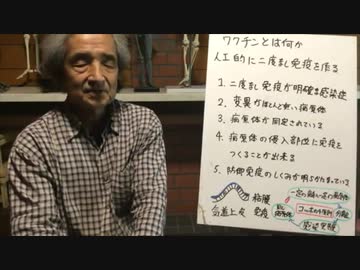 ワクチンとは何か
人工的に二度乱し免疫を売る
1. 二度乱し免疫が明確な感染症
2. 変異がほとんど無い病原体
3. 病原体が同定されている
4. 病原体の侵入部位に免疫を
つくることが出来る
5. 防御免疫のしくみが明らかなっている
粘膜
気道上皮 免疫
コッホの4原則
分離
感染実験